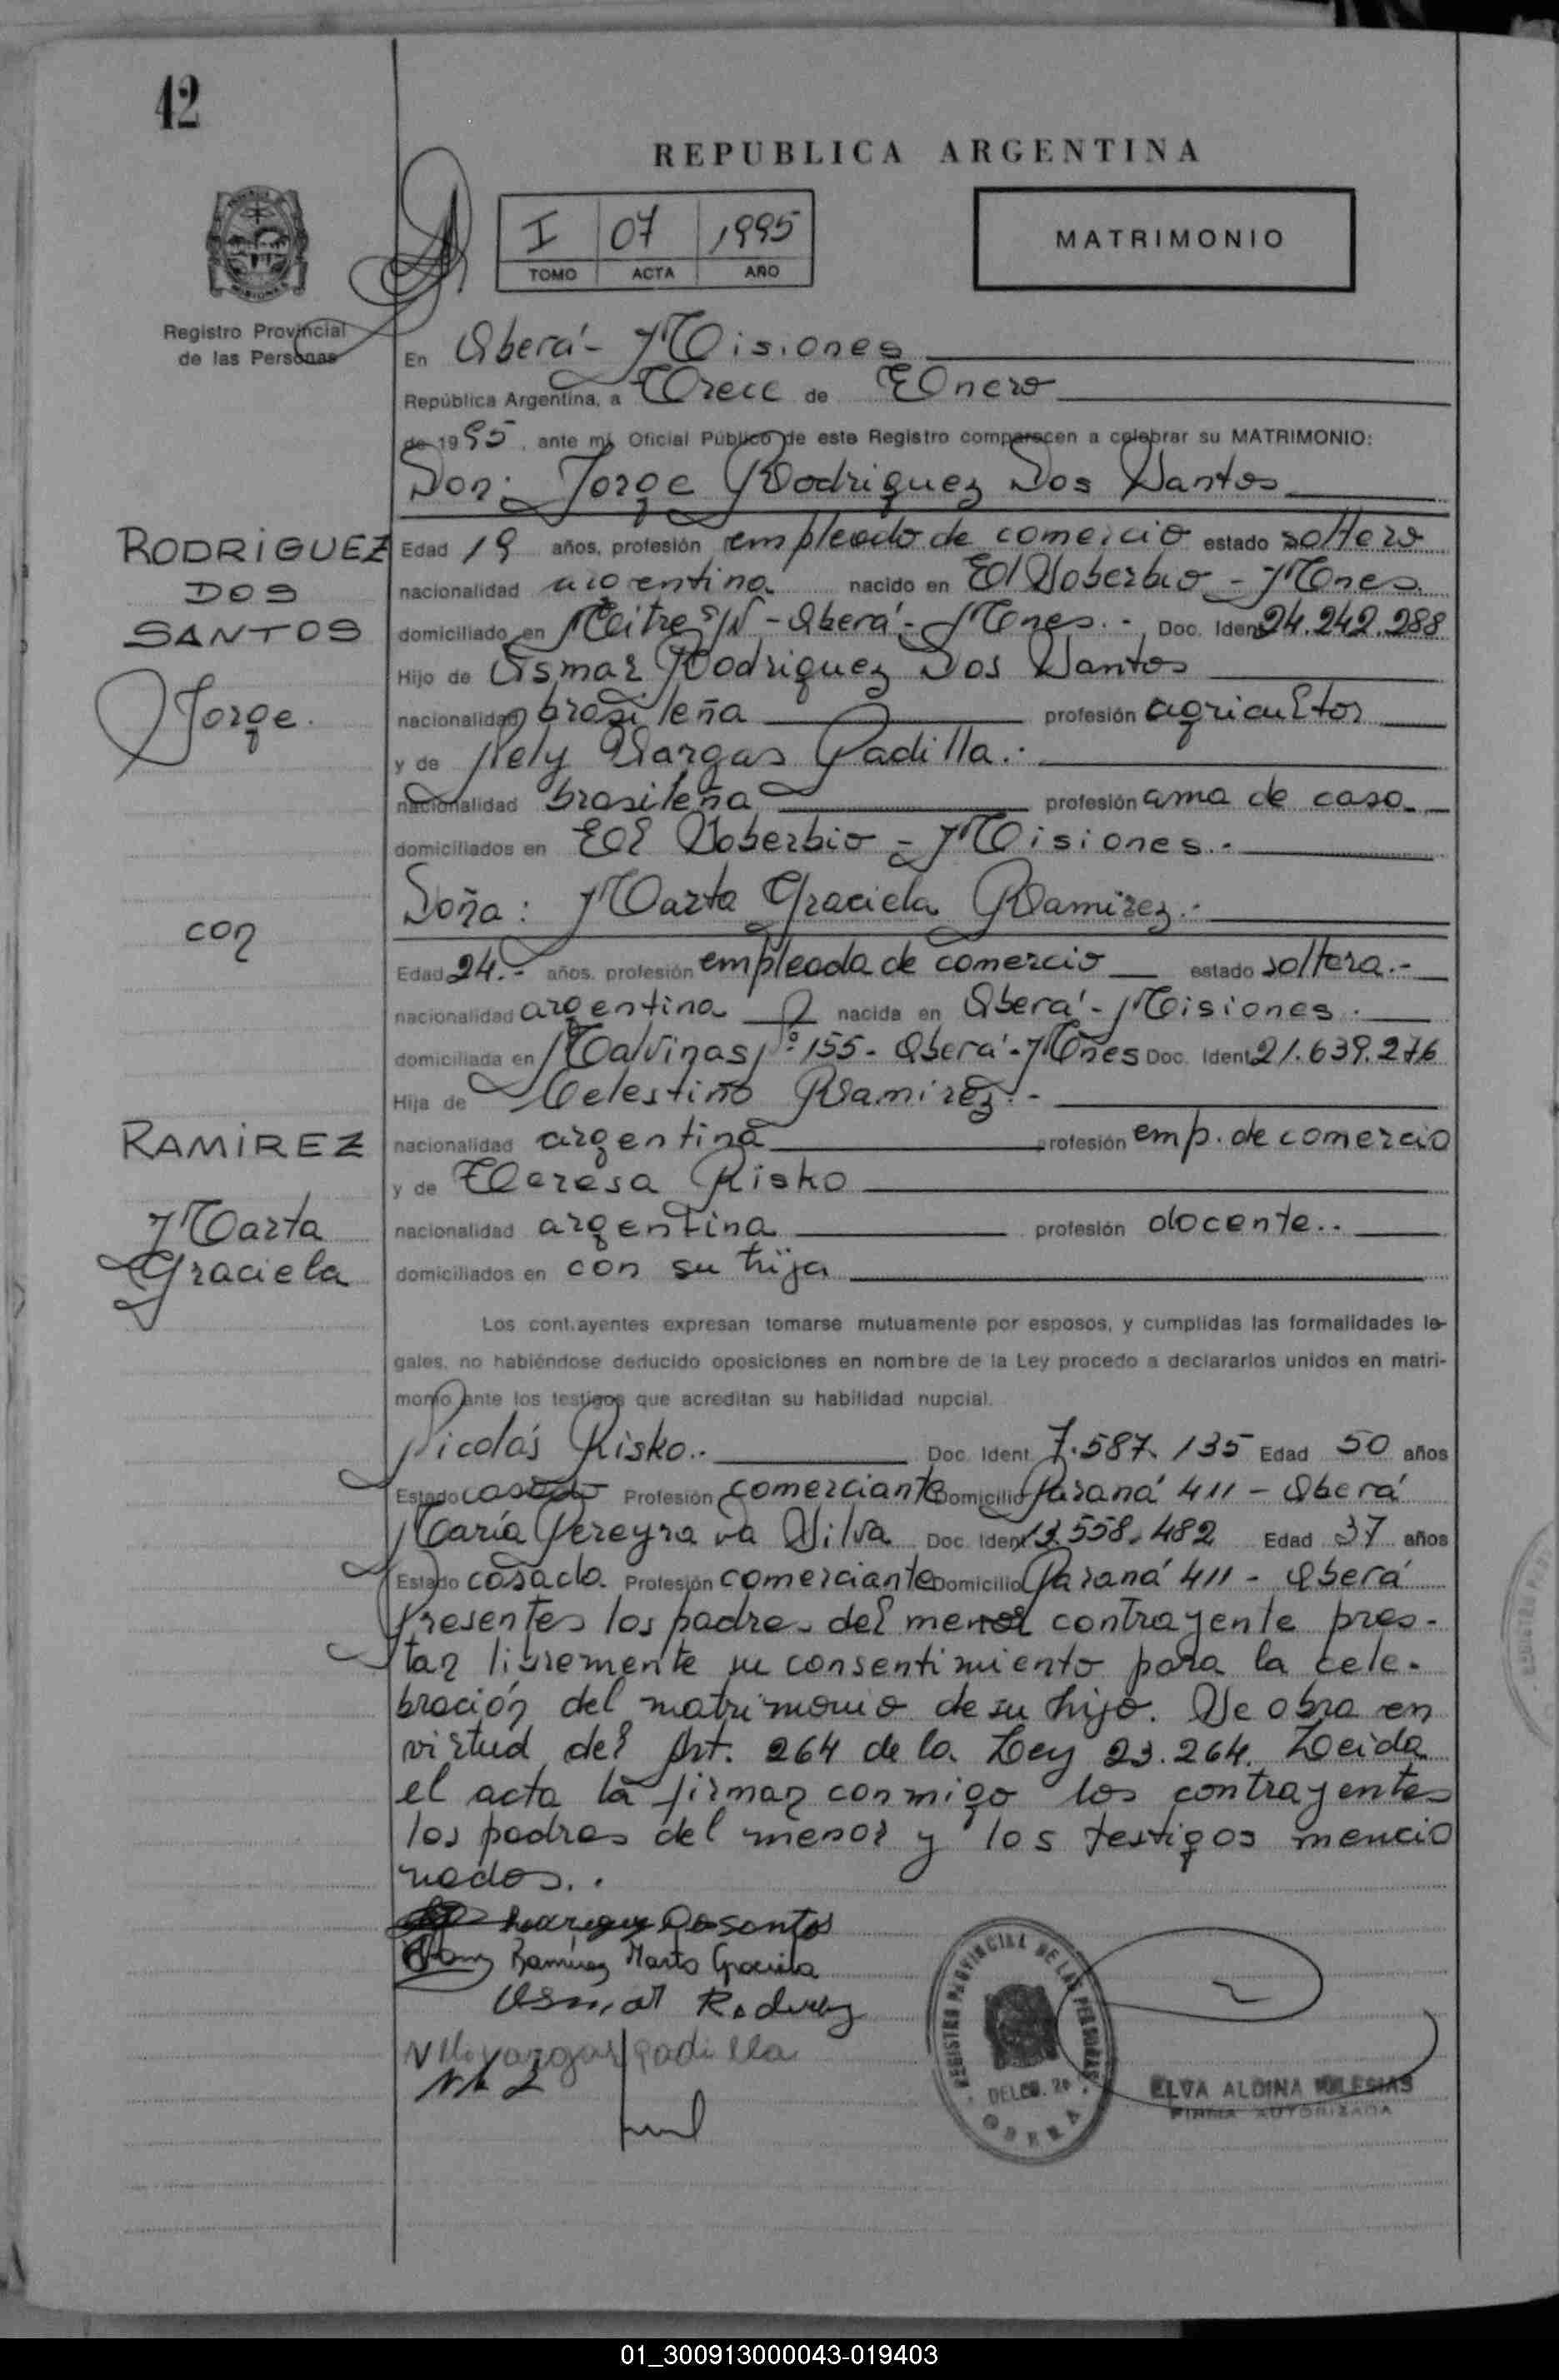 42
REPUBLICA ARGENTINA
I 07 1995
TOMO ACTA AÑO
MATRIMONIO
Registro Provincial
de las Personas
En Oberá - Misiones
República Argentina, a Trece de Enero
de 1995, ante mí, Oficial Público de este Registro comparecen a celebrar su MATRIMONIO:
Don: Jorge Rodriguez Dos Santos
RODRIGUEZ
DOS
SANTOS
Jorge.
Edad 19 años, profesión empleado de comercio estado soltero
nacionalidad argentina nacido en El Soberbio - Mnes.
domiciliado en Mitre S/N - Oberá - Mnes. - Doc. Ident 24.242.288
Hijo de Osmar Rodriguez Dos Santos
nacionalidad brasileña profesión agricultor
y de Nely Vargas Padilla.
nacionalidad brasileña profesión ama de casa
domiciliados en El Soberbio - Misiones.-
con
Doña: Marta Graciela Ramirez.-
Edad 24.- años. profesión empleada de comercio estado soltera.-
nacionalidad argentina nacida en Oberá - Misiones.
domiciliada en Malvinas Nº 155 - Oberá - Mnes Doc. Ident 21.639.276
Hija de Celestino Ramirez.-
RAMIREZ
Marta
Graciela
nacionalidad argentina profesión emp. de comercio
y de Teresa Risko
nacionalidad argentina profesión docente..
domiciliados en con su hija
Los contrayentes expresan tomarse mutuamente por esposos, y cumplidas las formalidades le-
gales, no habiéndose deducido oposiciones en nombre de la Ley procedo a declararlos unidos en matri-
monio ante los testigos que acreditan su habilidad nupcial.
Nicolás Risko.. Doc. Ident 7.587.135 Edad 50 años
Estado casado Profesión comerciante Domicilio Paraná 411 - Oberá
María Pereyra Da Silva Doc. Ident 13.558.482 Edad 37 años
Estado casada Profesión comerciante Domicilio Paraná 411 - Oberá
Presentes los padres del menor contrayente pres-
tan libremente su consentimiento para la cele-
bración del matrimonio de su hijo. Se obra en
virtud del Art. 264 de la Ley 23.264. Leida
el acta la firman conmigo los contrayentes
los padres del menor y los testigos mencio
nados..
Dosantos
Ramirez Marta Graciela
Osmar
vargas padilla
REGISTRO PROVINCIAL DE LAS PERSONAS
OBERA
ELVA ALDINA IGLESIAS
FIRMA AUTORIZADA
01_300913000043-019403